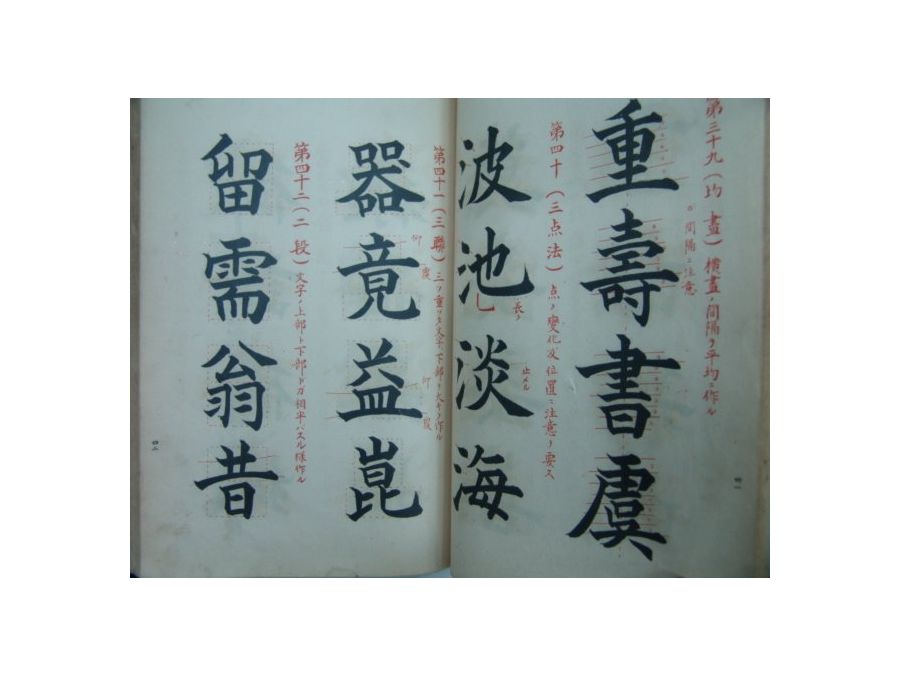 第三十九(均畫)横畫ノ間隔ヲ平均ニ作ル
間隔ニ注意
重壽書虞
第四十(三点法)点ノ變化及位置ニ注意ヲ要ス
長ク
止メル
波池淡海
四一
第四十一(三聯)三ツ重ツタ文字、下部ヲ大キク作ル
仰
覆
仰
覆
器竟益崑
第四十二(二段)文字ノ上部ト下部トガ相半バスル様作ル
留需翁昔
四二